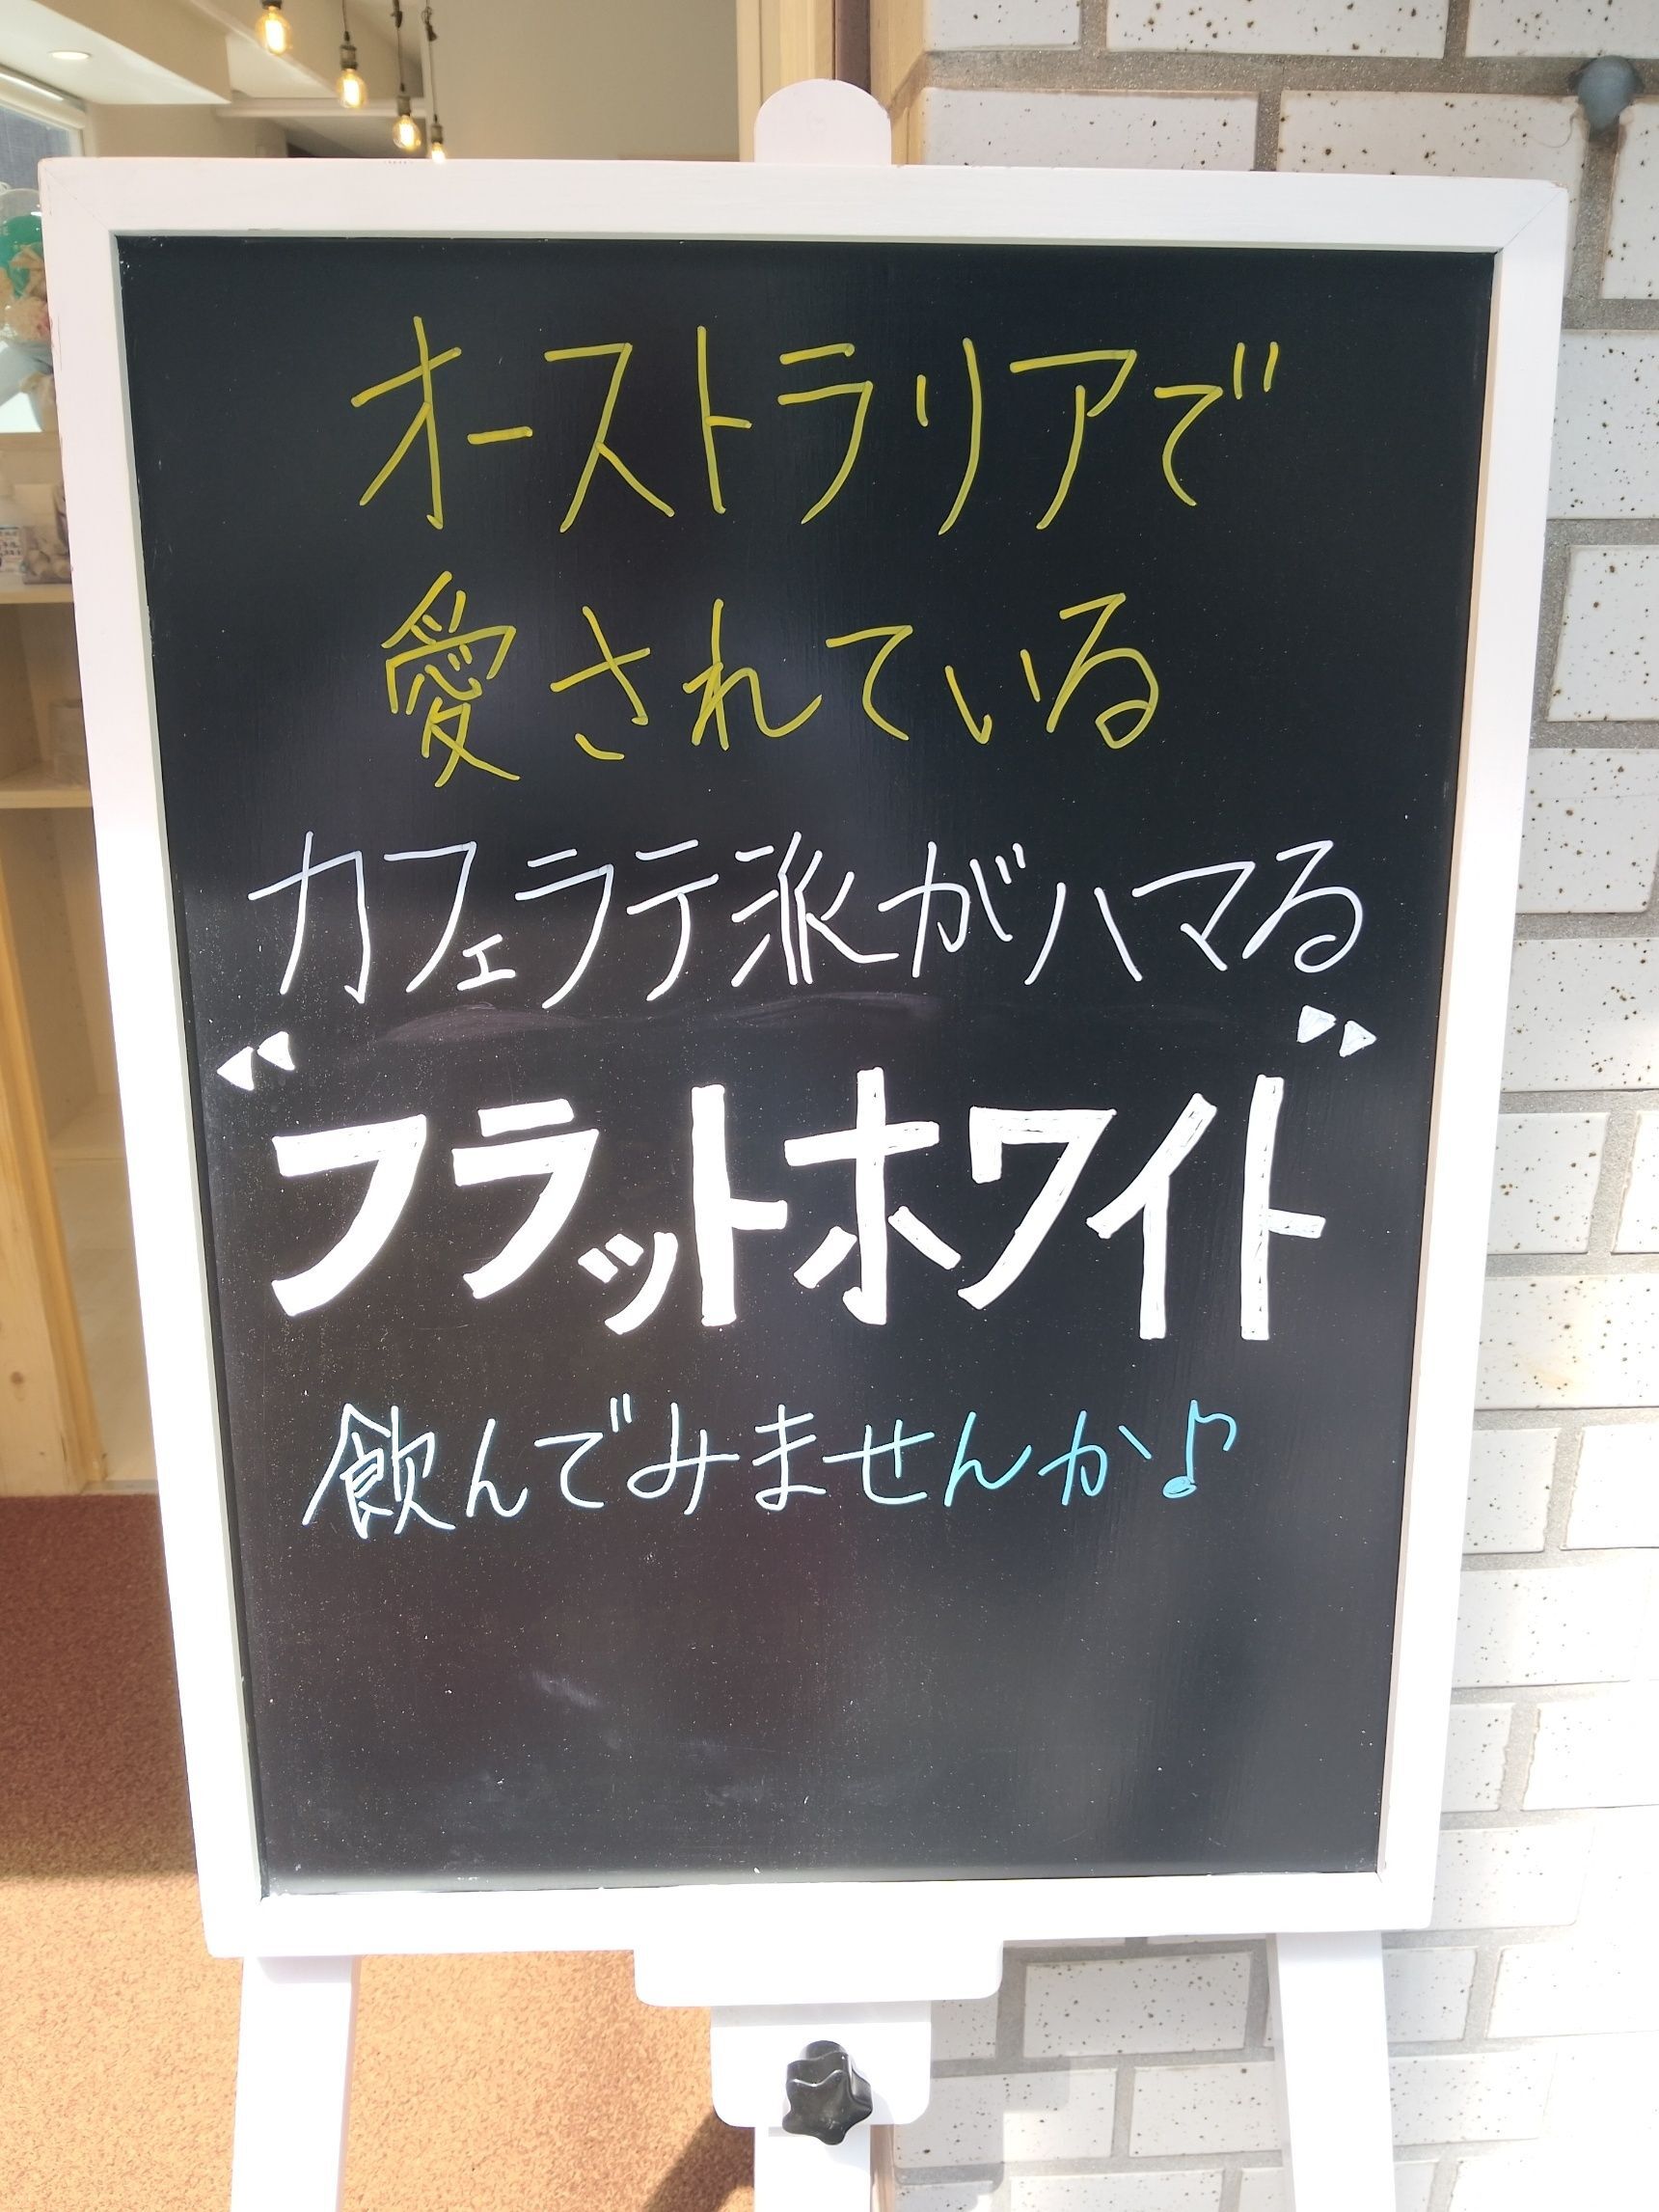 オーストラリアで
愛されている
カフェラテ派がハマる
"フラットホワイト"
飲んでみませんか♪